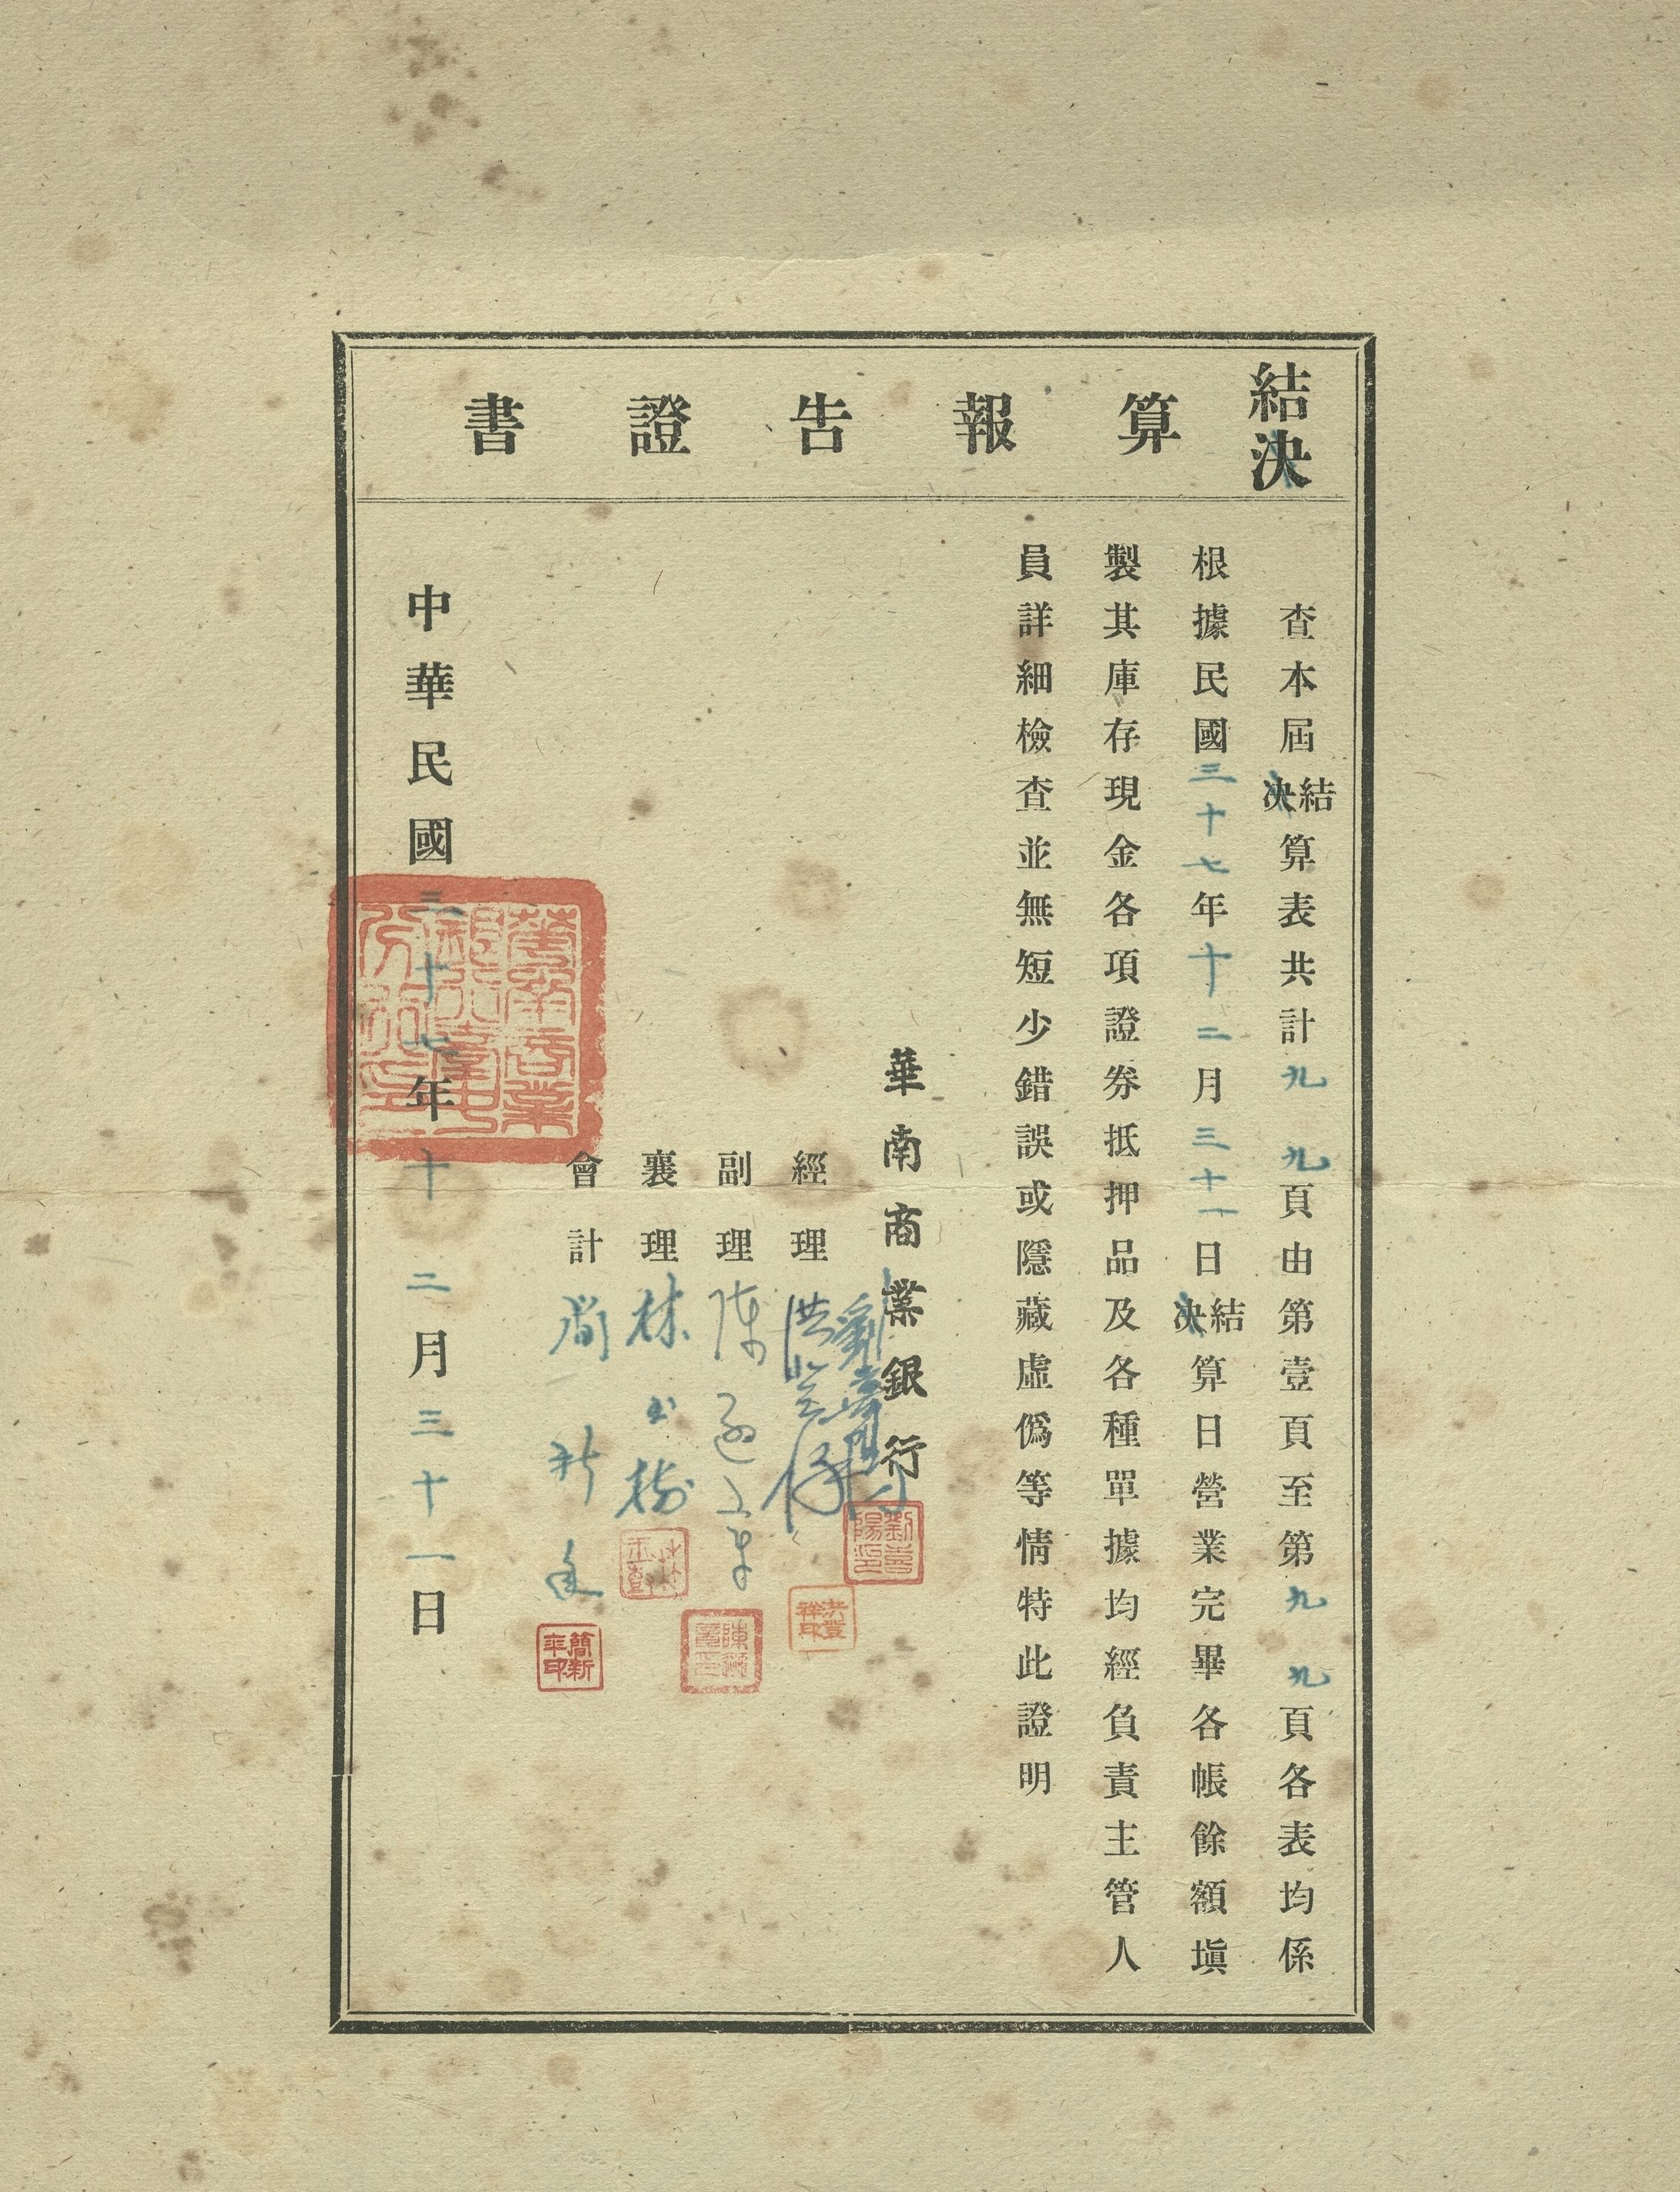 結決算報告證書
查本屆結決算表共計九九頁由第壹頁至第九九頁各表均係
根據民國三十七年十二月三十一日結決算日營業完畢各帳餘額塡
製其庫存現金各項證券抵押品及各種單據均經負責主管人
員詳細檢查並無短少錯誤或隱藏虛僞等情特此證明
華南商業銀行
劉喜陽印
經理
洪
副理陳
襄理林玉樹
會計簡新年
簡新年印
華南商業銀行臺中分行印
中華民國三十七年十二月三十一日